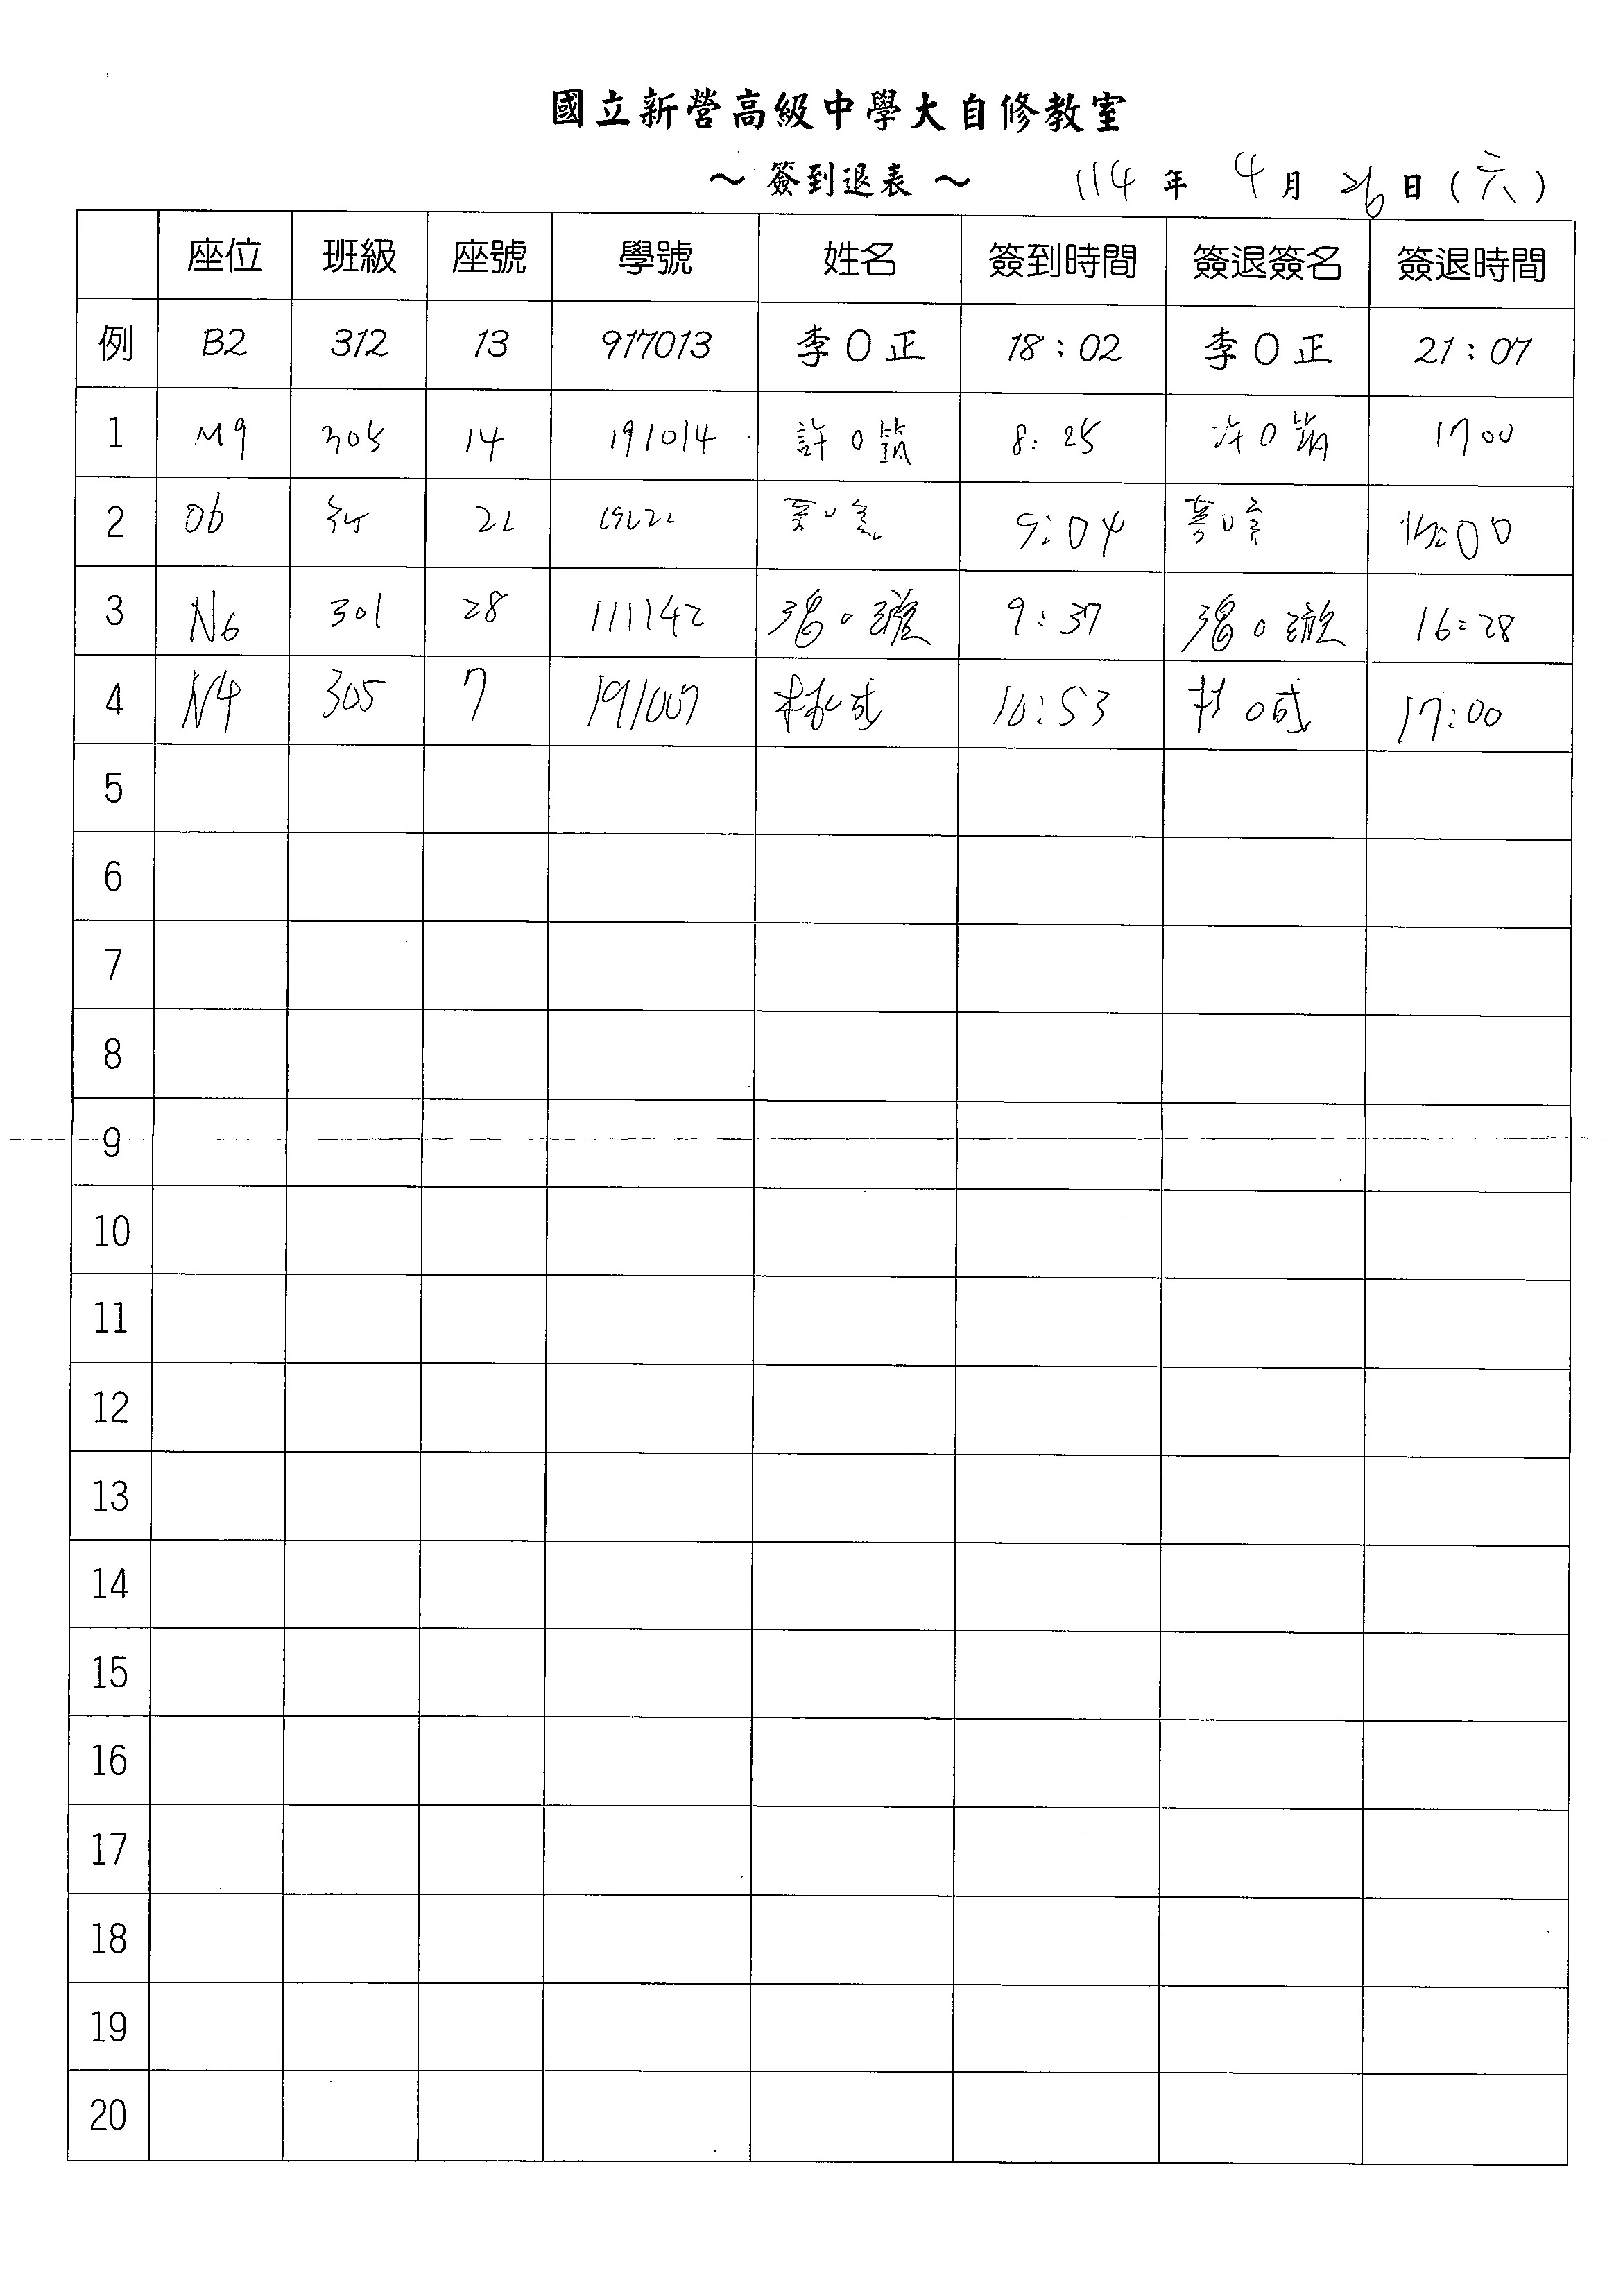 國立新營高級中學大自修教室
～ 簽到退表 ～ 114 年 4 月 26 日 (六)
座位 班級 座號 學號 姓名 簽到時間 簽退簽名 簽退時間
例 B2 312 13 917013 李O正 18:02 李O正 21:07
1 M9 305 14 191014 許O筑 8:25 許O筑 1700
2 O6 22 9:04
3 N6 301 28 111142 9:37 16:28
4 N4 305 7 191007 10:53 17:00
5
6
7
8
9
10
11
12
13
14
15
16
17
18
19
20